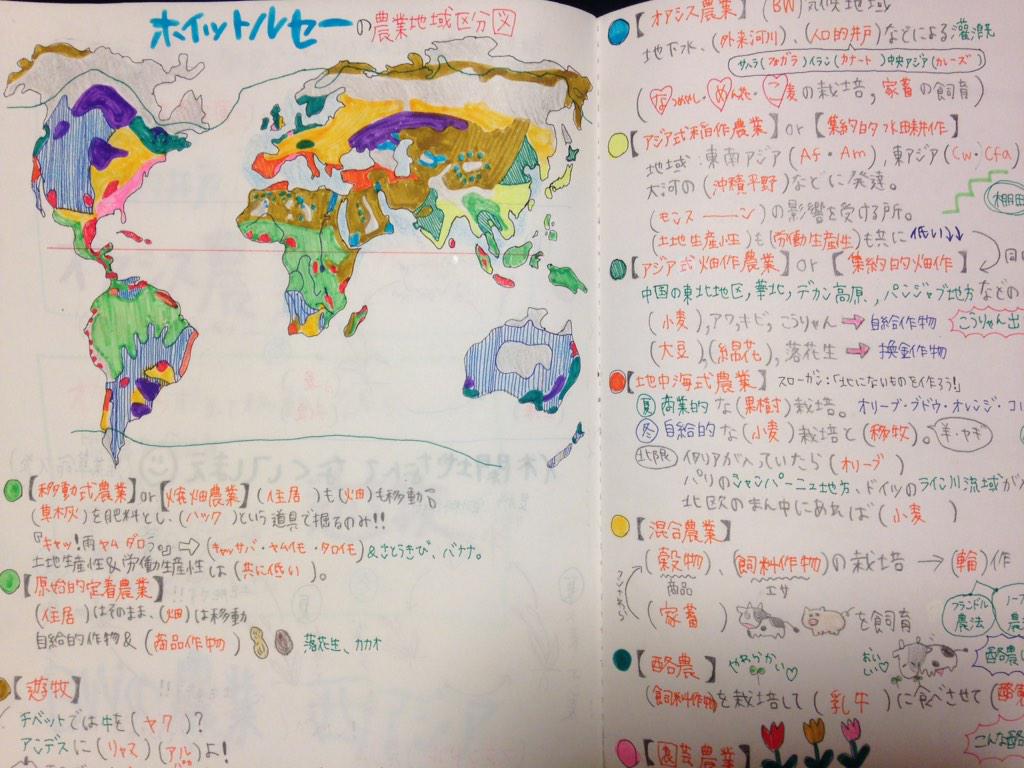 ホイットルセーの農業地域区分図
【移動式農業】or【焼畑農業】(住居)も(畑)も移動。
(草木灰)を肥料とし、(ハック)という道具で掘るのみ!!
『キャッ!雨ヤムダロヲ。』⇨(キャッサバ・ヤムイモ・タロイモ)&さとうきび、バナナ。
土地生産性&労働生産性は(共に低い)。
【原始的定着農業】
(住居)はそのまま、(畑)は移動
自給的作物&(商品作物) 落花生、カカオ
【遊牧】
チベットでは牛を(ヤク)?
アンデスに(リャマ)(アルパカ)よ!
【オアシス農業】(BW)気候地域
地下水、(外来河川)、(人口的井戸)などによる灌漑
サハラ(フォガラ)イラン(カナート)中央アジア(カレーズ)
(なつめやし・めん花・こ麦の栽培,家畜の飼育)
【アジア式稲作農業】or【集約的水田耕作】
地域:東南アジア(Af・Am),東アジア(Cw・Cfa
大河の(沖積平野)などに発達。
棚田
(モンスーン)の影響を受ける所。
(土地生産性)も(労働生産性)も共に低い↓↓
【アジア式畑作農業】or【集約的畑作】
中国の東北地区,華北,デカン高原,パンジャブ地方などの
(小麦),アワ,キビ,こうりゃん➡自給作物 こうりゃん出
(大豆),(綿花),落花生➡換金作物
【地中海式農業】スローガン:「北にないものを作ろう!」
夏 商業的な(果樹)栽培。オリーブ・ブドウ・オレンジ・コル
冬 自給的な(小麦)栽培と(移牧)。羊・ヤギ
北限 イタリアが入っていたら(オリーブ)
パリのシャンパーニュ地方、ドイツのライン川流域が入
北欧のまん中にあれば(小麦)
【混合農業】
(穀物)、(飼料作物)の栽培→(輪)作
商品 エサ
(家畜)を飼育
フランドル農法
【酪農】やわらかい♡ おいしい♡
(飼料作物)を栽培して(乳牛)に食べさせて
【園芸農業】
こんな酪